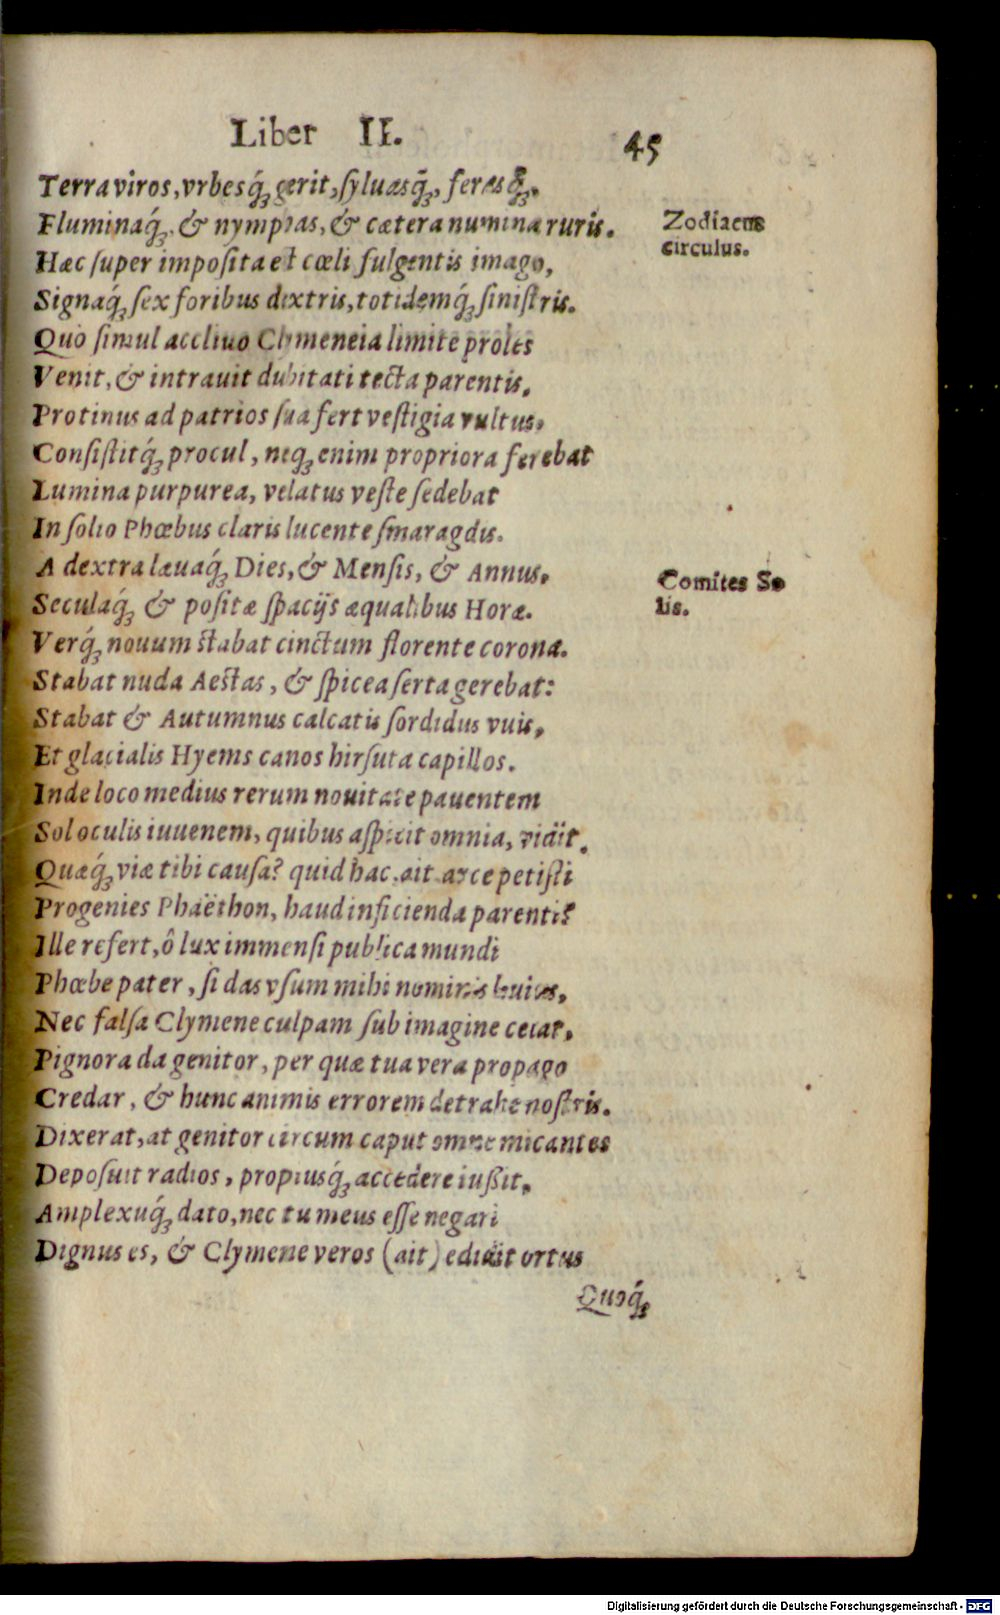 Liber II. 45
Terra viros, vrbesq́ꝫ gerit, syluasq́ꝫ, ferasq́ꝫ,
Fluminaq́ꝫ, & nymphas, & cætera numina ruris.
Zodiacus
circulus.
Hæc super imposita est cœli fulgentis imago,
Signaq́ꝫ sex foribus dextris, totidemq́ꝫ sinistris.
Quò simul accliuo Clymeneia limite proles
Venit, & intrauit dubitati tecta parentis,
Protinus ad patrios sua fert vestigia vultus,
Consistitq́ꝫ procul, neqꝫ enim propriora ferebat
Lumina purpurea, velatus veste sedebat
In solio Phœbus claris lucente smaragdis.
A dextra læuaq́ꝫ Dies, & Mensis, & Annus,
Comites So
lis.
Seculaq́ꝫ & positæ spacijs æqualibus Horæ.
Verq́ꝫ nouum stabat cinctum florente corona.
Stabat nuda Aestas, & spicea serta gerebat:
Stabat & Autumnus calcatis sordidus vuis,
Et glacialis Hyems canos hirsuta capillos.
Inde loco medius rerum nouitate pauentem
Sol oculis iuuenem, quibus aspicit omnia, vidit.
Quæq́ꝫ viæ tibi causa? quid hac, ait arce petisti
Progenies Phaëthon, haud inficienda parenti?
Ille refert, ô lux immensi publica mundi
Phœbe pater, si das vsum mihi nominis huius,
Nec falsa Clymene culpam sub imagine celat,
Pignora da genitor, per quæ tua vera propago
Credar, & hunc animis errorem detrahe nostris.
Dixerat, at genitor circum caput omne micantes
Deposuit radios, propiusq́ꝫ accedere iußit,
Amplexuq́ꝫ dato, nec tu meus esse negari
Dignus es, & Clymene veros (ait) edidit ortus
Quoq́ꝫ
Digitalisierung gefördert durch die Deutsche Forschungsgemeinschaft - DFG